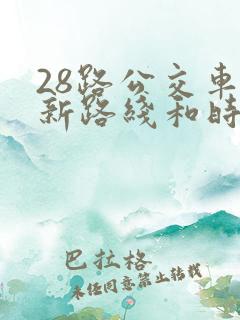 28路公交车
新路线和时
巴拉格
未经同意禁止转载